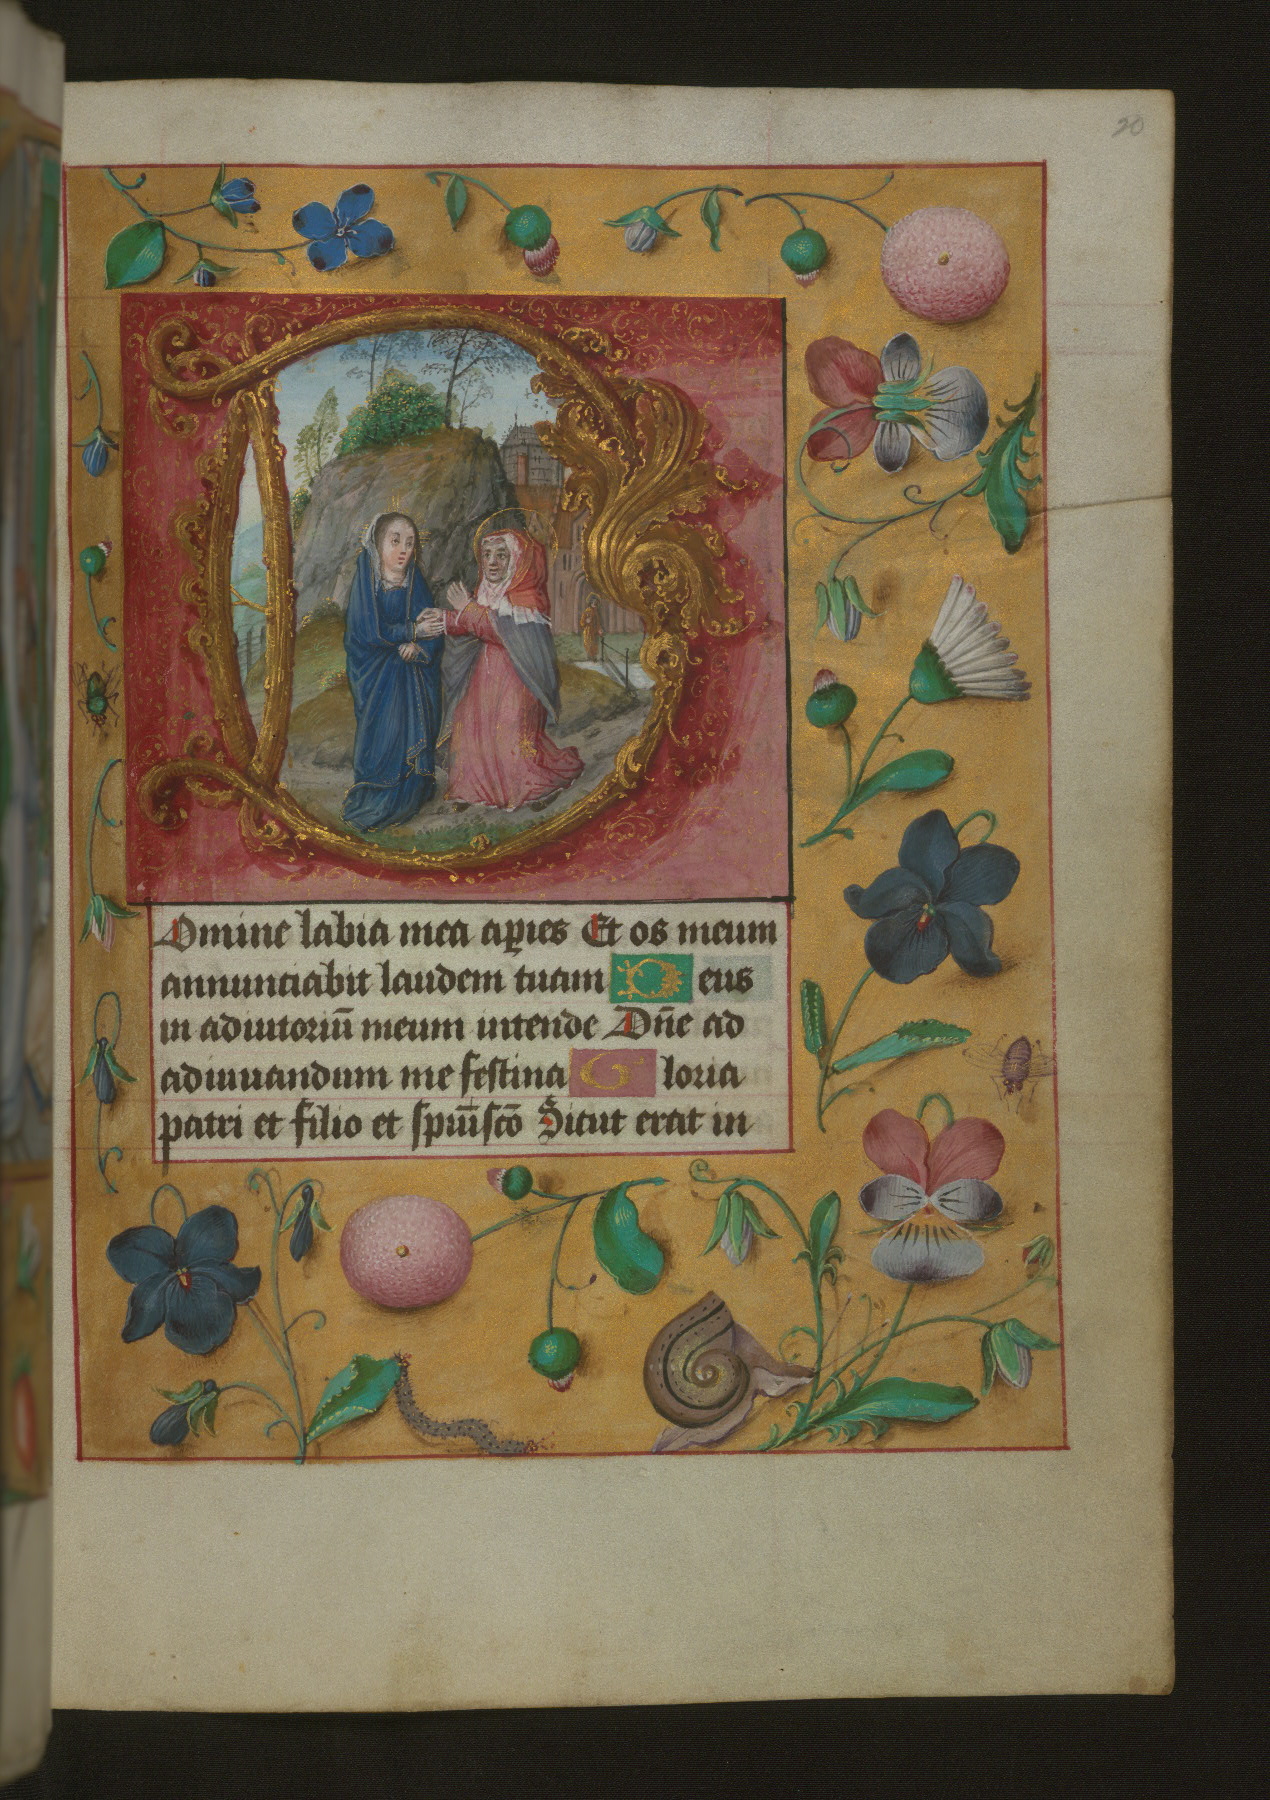 20
Domine labia mea apies Et os meum
annunciabit laudem tuam Deus
in adiutoriū meum intende Dn̄e ad
adiuuandum me festina Gloria
patri et filio et spūi scō Sicut erat in